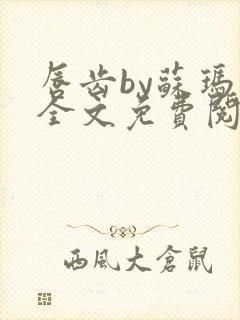 唇齿by蘇瑪
全文免費閱
西風大倉鼠